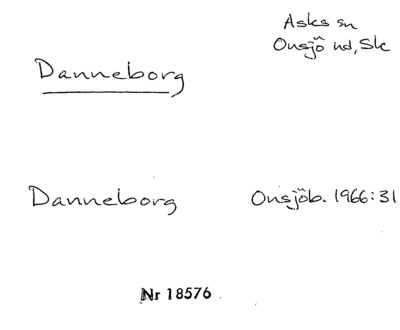 Asks sn
Onsjö hd, Sk
Danneborg
Danneborg
Onsjöb. 1966:31
Nr 18576